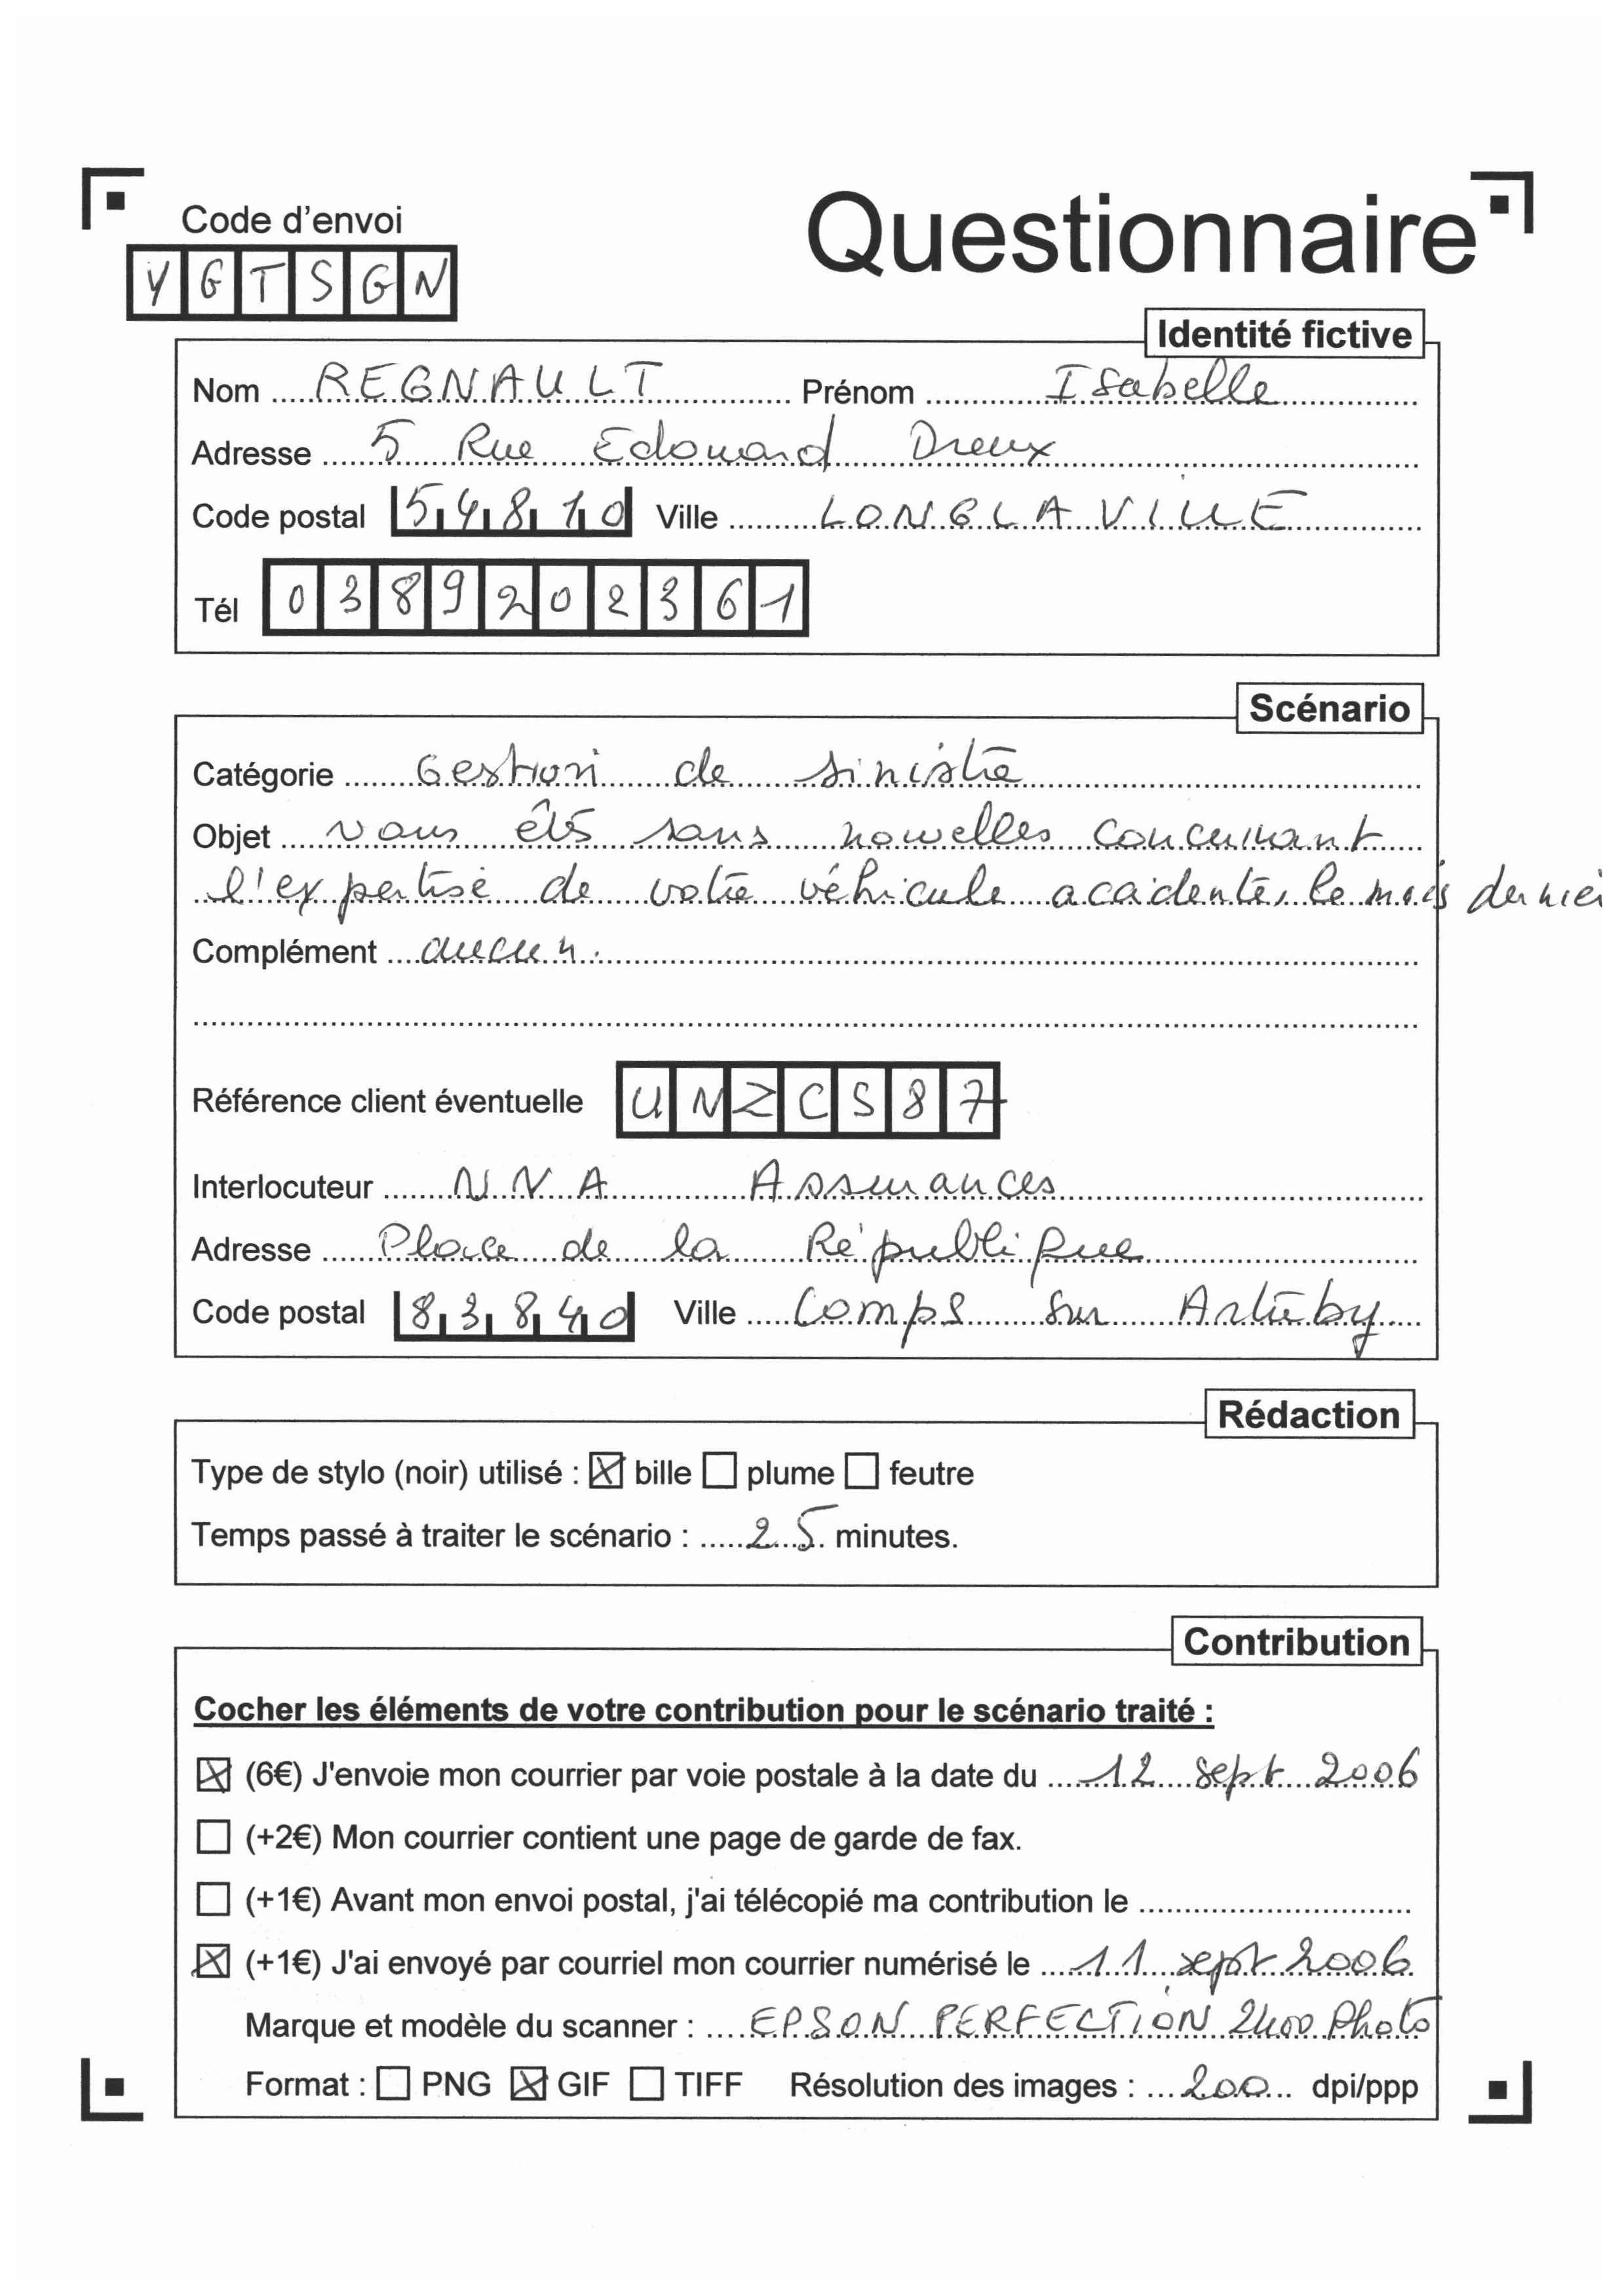 Questionnaire
Code d'envoi
YGTSGN
Identité fictive
Nom REGNAULT Prénom Isabelle
Adresse 5 Rue Edouard Dreux
Code postal 54810 Ville LONGLAVILLE
Tél 0389202361
Scénario
Catégorie Gestion de sinistre
Objet vous êtes sans nouvelles concernant
l'expertise de votre véhicule accidenté, le mois dernier
Complément aucun.
Référence client éventuelle UNZCS87
Interlocuteur NNA Assurances
Adresse Place de la République
Code postal 83840 Ville Comps sur Artuby
Rédaction
Type de stylo (noir) utilisé : ☒ bille ☐ plume ☐ feutre
Temps passé à traiter le scénario : 25 minutes.
Contribution
Cocher les éléments de votre contribution pour le scénario traité :
☒ (6€) J'envoie mon courrier par voie postale à la date du 12 sept 2006
☐ (+2€) Mon courrier contient une page de garde de fax.
☐ (+1€) Avant mon envoi postal, j'ai télécopié ma contribution le
☒ (+1€) J'ai envoyé par courriel mon courrier numérisé le 11 sept 2006
Marque et modèle du scanner : EPSON PERFECTION 2400 Photo
Format : ☐ PNG ☒ GIF ☐ TIFF Résolution des images : 200 dpi/ppp